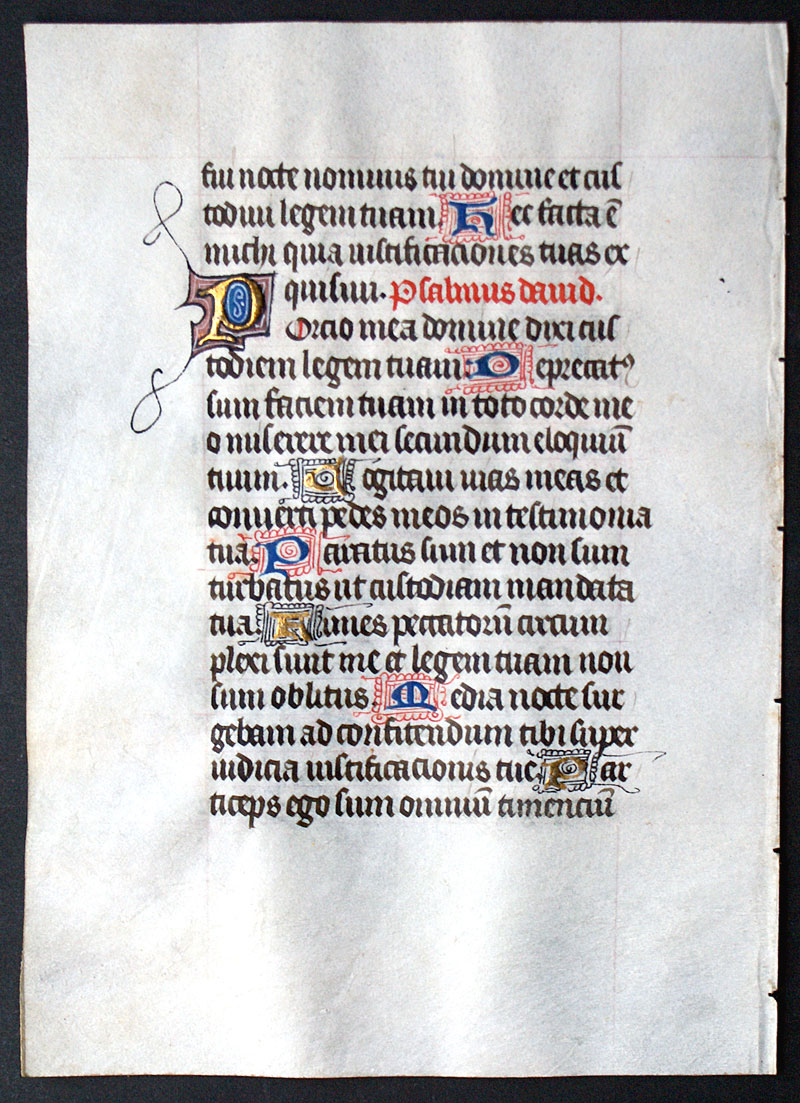 fui nocte nominis tui domine et cus
todiui legem tuam. Hec facta ē
michi quia iustificaciones tuas ex
quisiui. Psalmus dauid.
Porcio mea domine dixi cus
todiem legem tuam. Deprecatꝰ
sum faciem tuam in toto corde me
o miserere mei secundum eloquiū
tuum. Cogitaui uias meas et
conuerti pedes meos in testimonia
tua. Paratus sum et non sum
turbatus ut custodiam mandata
tua. Funes peccatorū circum
plexi sunt me et legem tuam non
sum oblitus. Media nocte sur
gebam ad confitendum tibi super
iudicia iustificacionis tue. Par
ticeps ego sum omniū timenciū